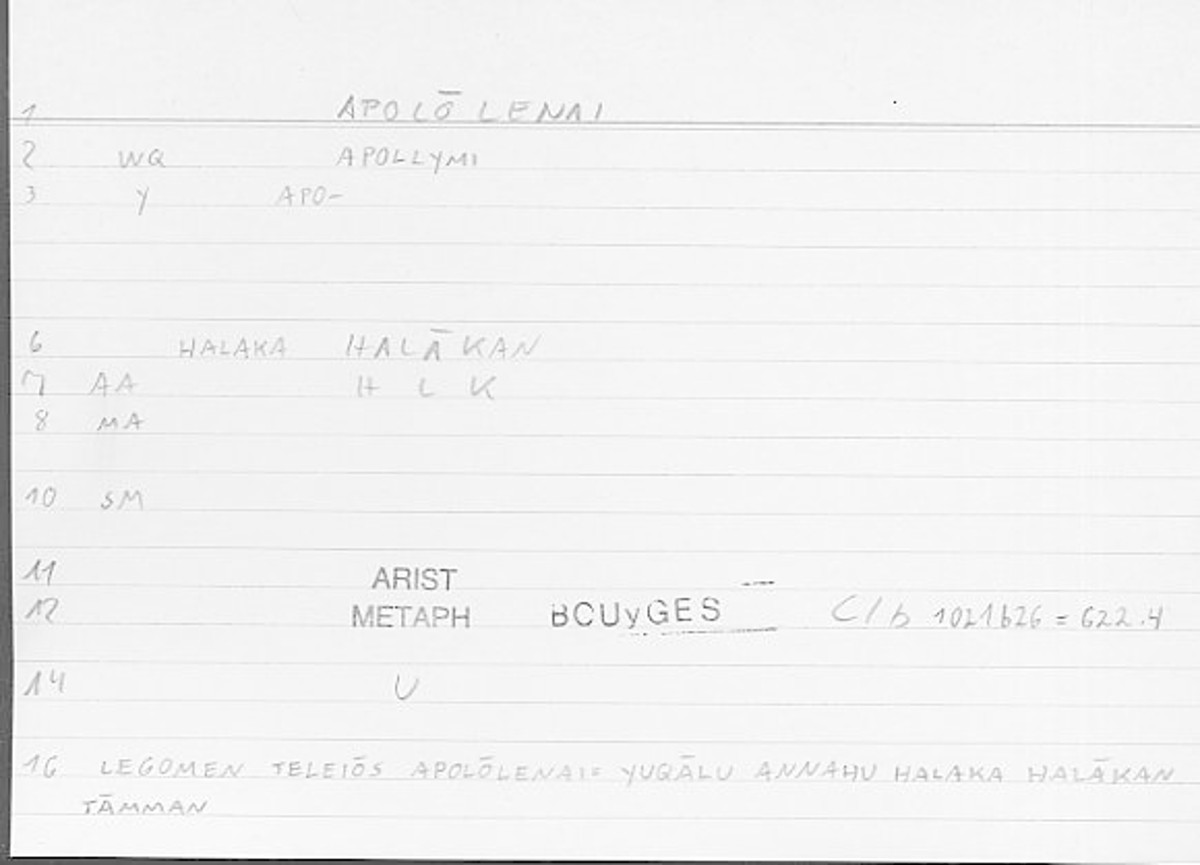 1 APOLŌLENAI
2 WQ APOLLYMI
3 y APO-
6 HALAKA HALĀKAN
7 AA H L K
8 MA
10 SM
11 ARIST
12 METAPH BOUyGES C/b 1021b26 = 622.4
14 U
16 LEGOMEN TELEIŌS APOLŌLENAI= YUQĀLU ANNAHU HALAKA HALĀKAN
TĀMMAN